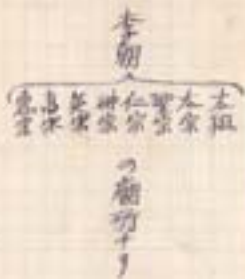 李朝ハ
太祖
太宗
世宗
仁宗
世宗
英宗
高宗
憲宗
ノ廟所ナリ